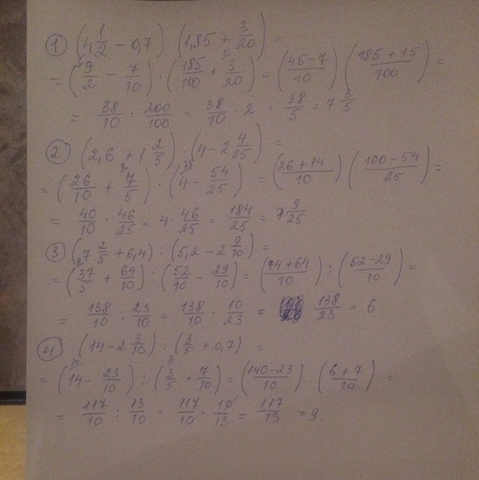 1) (4 1/2 - 0,7) · (1,85 + 3/20) =
= (9/2 - 7/10) · (185/100 + 3/20) = (45-7/10) (185+15/100) =
= 38/10 · 200/100 = 38/10 · 2 = 38/5 = 7 3/5
2) (2,6 + 1 2/5) · (4 - 2 4/25) =
= (26/10 + 7/5) · (4 - 54/25) = (26+14/10) (100-54/25) =
= 40/10 · 46/25 = 4 · 46/25 = 184/25 = 7 9/25
3) (7 2/5 + 6,4) : (5,2 - 2 9/10) =
= (37/5 + 64/10) : (52/10 - 29/10) = (74+64/10) : (52-29/10) =
= 138/10 : 23/10 = 138/10 · 10/23 = 138/23 = 6
4) (14 - 2 3/10) : (3/5 + 0,7) =
= (14 - 23/10) : (3/5 + 7/10) = (140-23/10) (6+7/10) =
= 117/10 : 13/10 = 117/10 · 10/13 = 117/13 = 9.